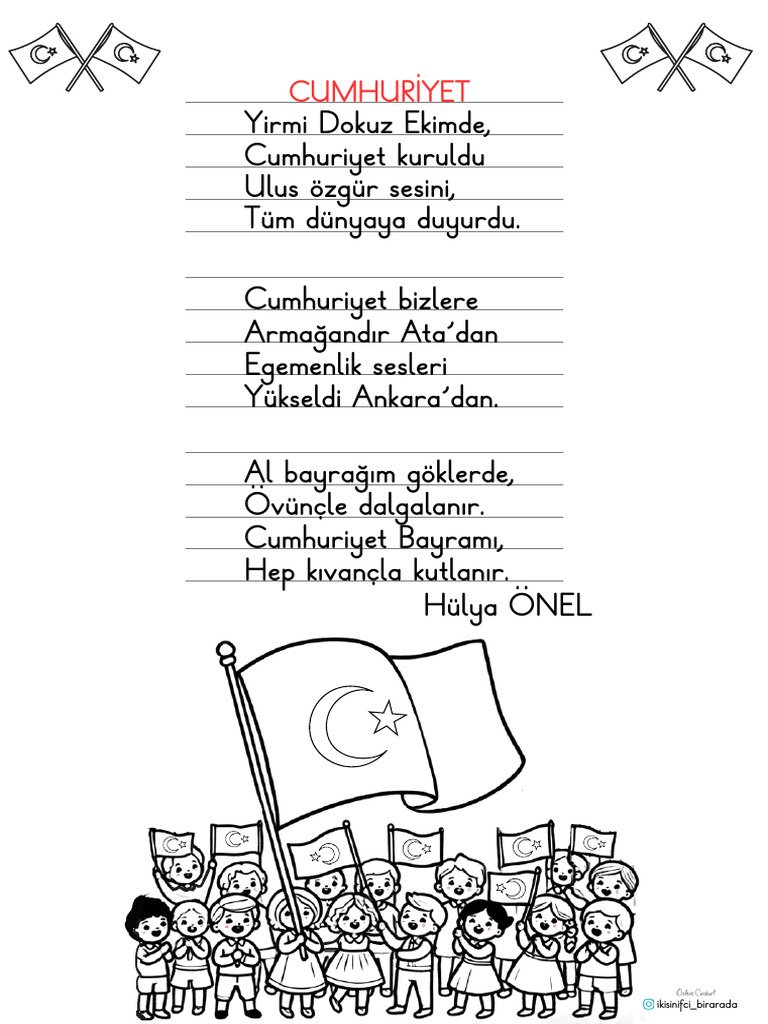 CUMHURİYET
Yirmi Dokuz Ekimde,
Cumhuriyet kuruldu
Ulus özgür sesini,
Tüm dünyaya duyurdu.
Cumhuriyet bizlere
Armağandır Ata'dan
Egemenlik sesleri
Yükseldi Ankara'dan.
Al bayrağım göklerde,
Övünçle dalgalanır.
Cumhuriyet Bayramı,
Hep kıvançla kutlanır.
Hülya ÖNEL
ikisinifci_birarada